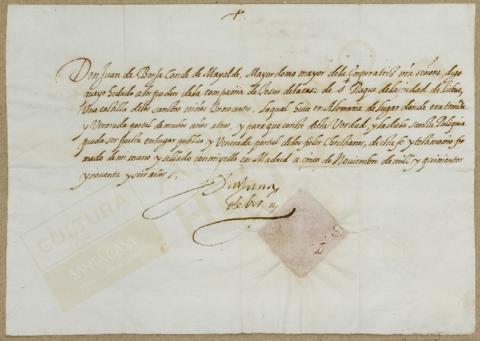 Don Juan de Borja Conde de Mayalde, Mayordomo mayor dela Emperatriz mi señora, digo
que yo he dado a los padres dela compañia de Jesus dela casa de S. Roque dela ciudad de Lisboa,
Una costilla delos sanctos niños Innocentes, la qual huve en Alemaña de lugar donde era tenida
y Venerada por tal de muchos años atras, y para que conste desta Verdad, y la dicha sancta Reliquia
pueda ser puesta en lugar publico y Venerada por tal delos fieles Christianos, di esta fe y testimonio firmado
de mi mano y sellado con mi sello en Madrid a cinco de Noviembre de mill y quinientos
y noventa y seis años.
Don Juan
de borja
CULTURA
SANTA CASA